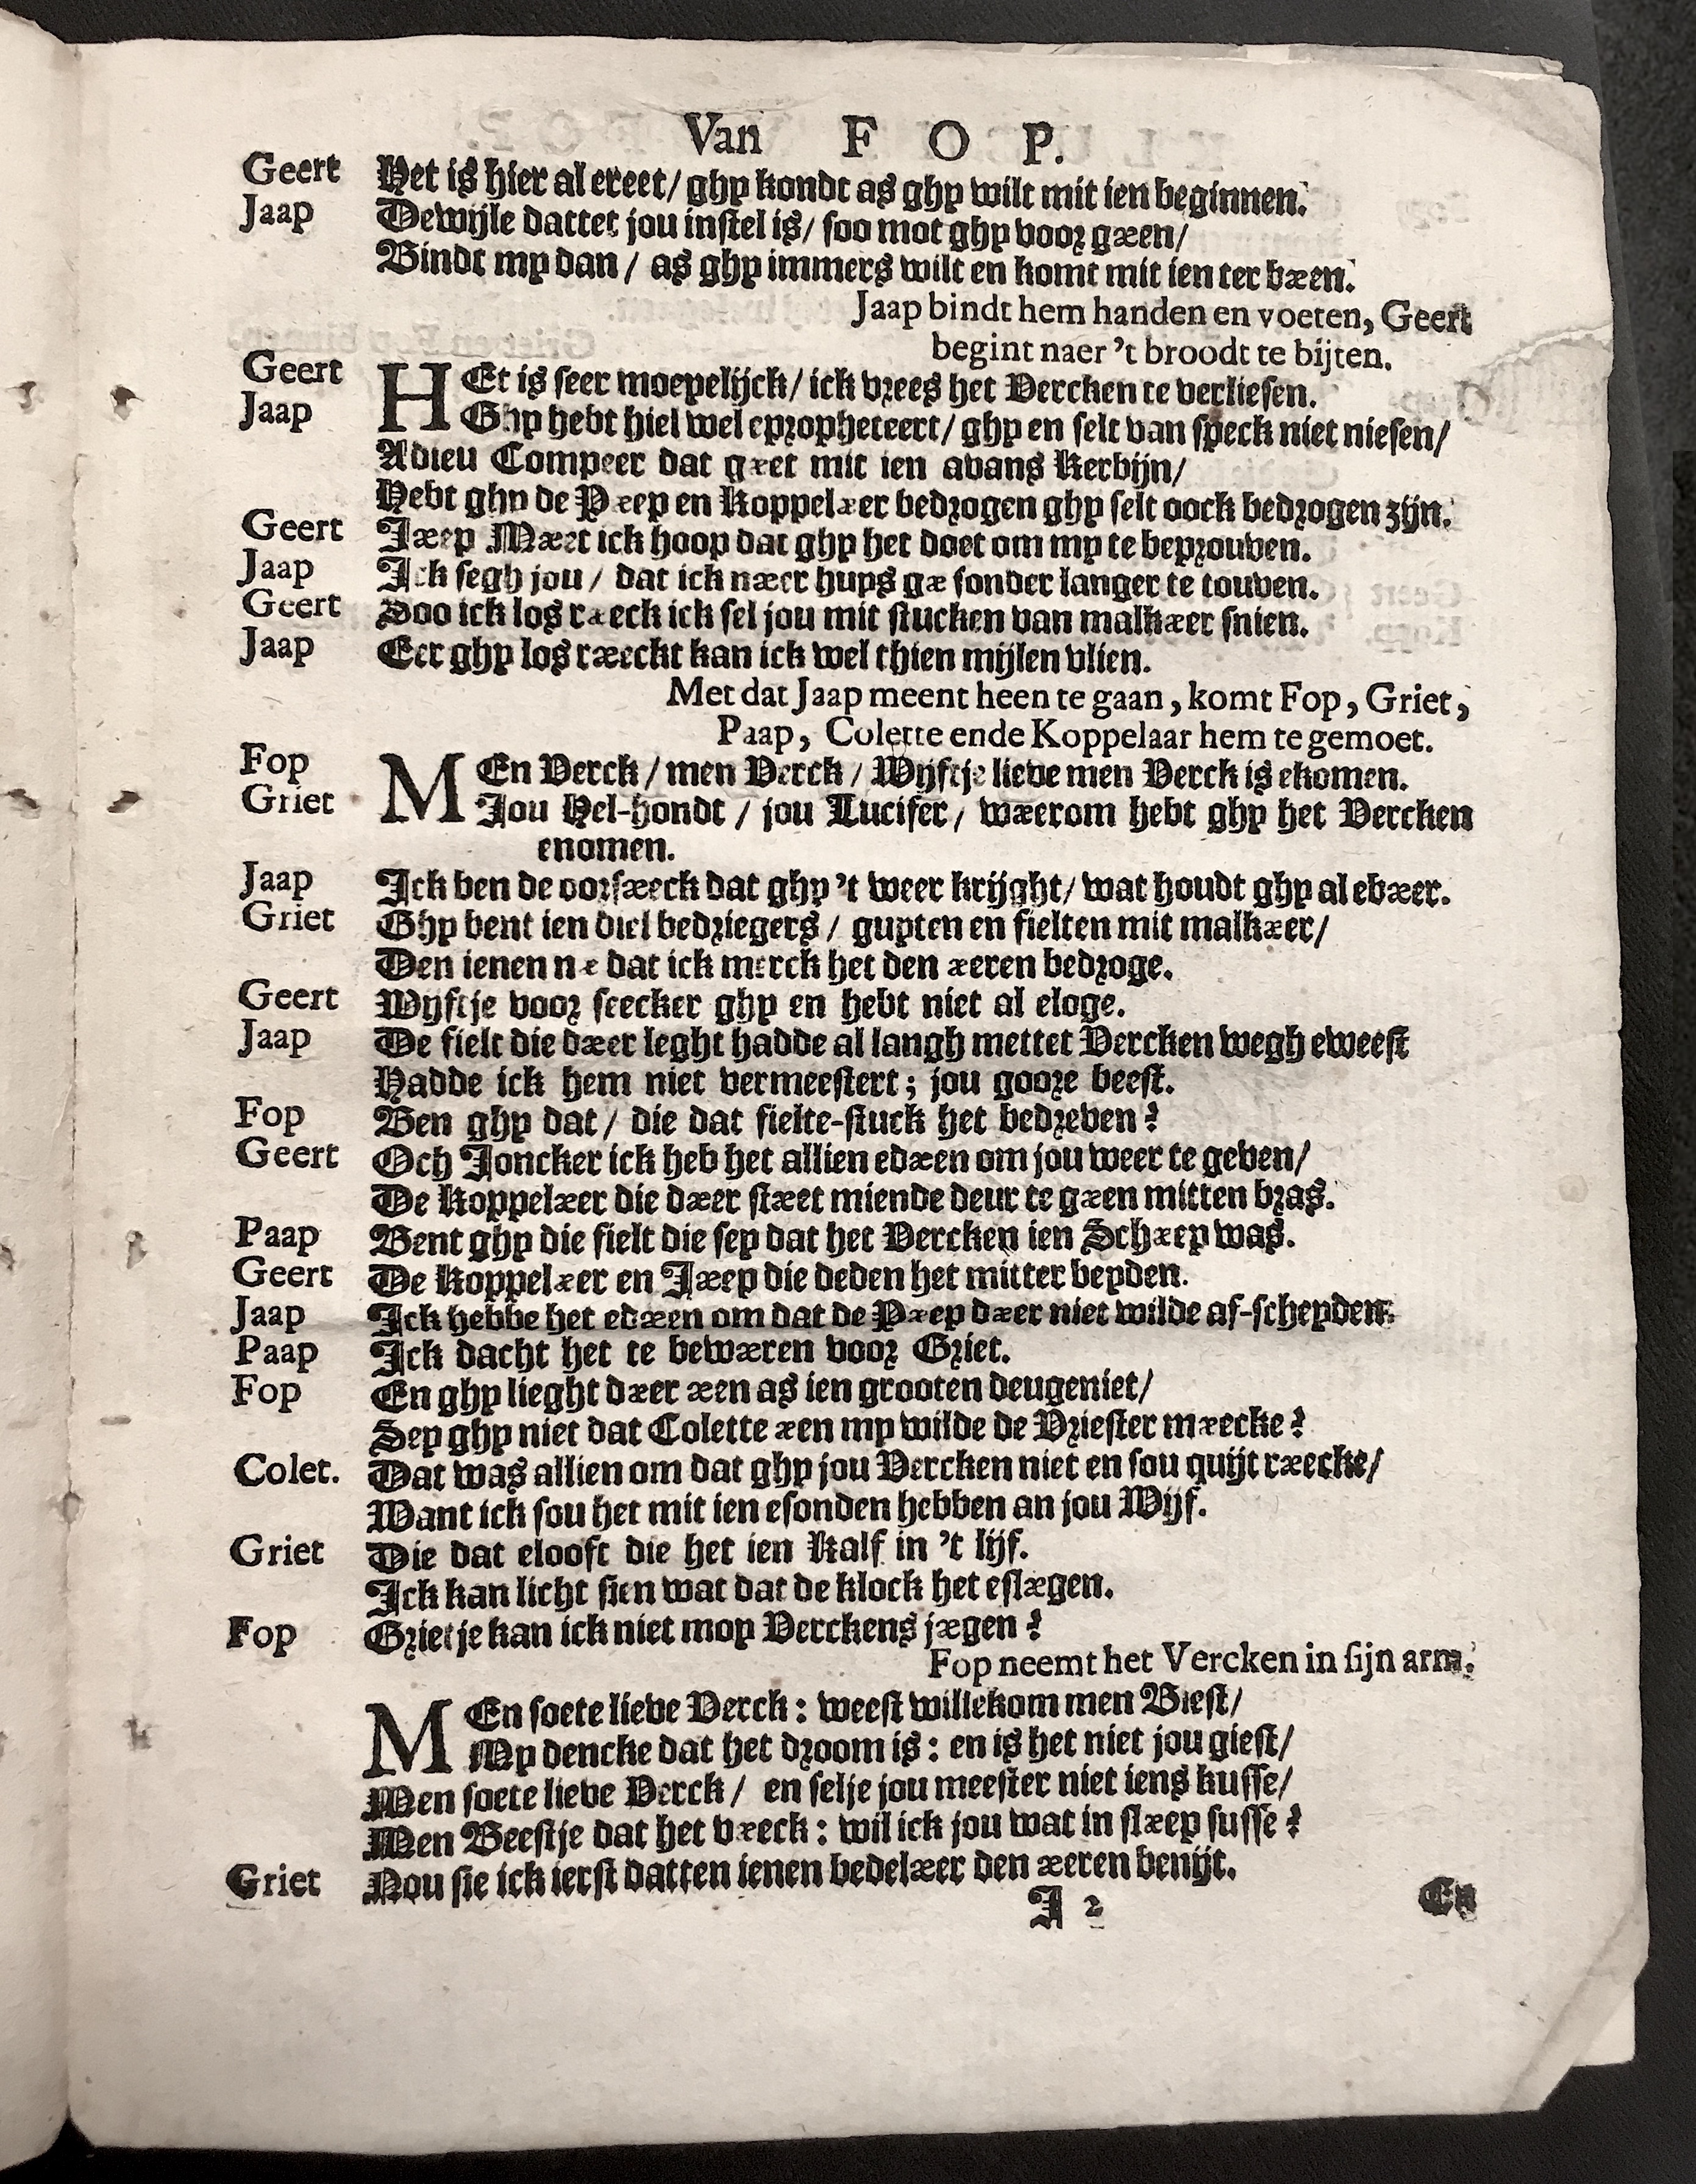 Van F O P.
Geert Het is hier al ereet/ ghy kondt as ghy wilt mit ien beginnen.
Jaap Dewijle dattet jou instel is/ soo mot ghy voor gæen/
Bindt my dan / as ghy immers wilt en komt mit ien ter bæen.
Jaap bindt hem handen en voeten, Geert
begint naer 't broodt te bijten.
Geert HEt is seer moeyelijck/ ick vrees het Vercken te verliesen.
Jaap Ghy hebt hiel wel epropheteert/ ghy en selt van speck niet niesen/
Adieu Compeer dat gæet mit ien avans Kerbijn/
Hebt ghy de Pæep en Koppelæer bedrogen ghy selt oock bedrogen zijn.
Geert Jæep Mæet ick hoop dat ghy het doet om my te beprouven.
Jaap Ick segh jou / dat ick næer huys gæ sonder langer te touven.
Geert Soo ick los ræeck ick sel jou mit stucken van malkæer snien.
Jaap Eer ghy los ræeckt kan ick wel thien mijlen vlien.
Met dat Jaap meent heen te gaan, komt Fop, Griet,
Paap, Colette ende Koppelaar hem te gemoet.
Fop MEn Verck / men Verck / Wijftje lieve men Verck is ekomen.
Griet Jou Hel-hondt / jou Lucifer/ wæerom hebt ghy het Vercken
enomen.
Jaap Ick ben de oorsæeck dat ghy 't weer krijght/ wat houdt ghy al ebæer.
Griet Ghy bent ien diel bedriegers / guyten en fielten mit malkæer/
Den ienen næ dat ick merck het den æeren bedroge.
Geert Wijftje voor seecker ghy en hebt niet al eloge.
Jaap De fielt die dæer leght hadde al langh mettet Vercken wegh eweest
Hadde ick hem niet vermeestert; jou goore beest.
Fop Ben ghy dat/ die dat fielte-stuck het bedreven?
Geert Och Joncker ick heb het allien edæen om jou weer te geven/
De Koppelæer die dæer stæet miende deur te gæen mitten bras.
Paap Bent ghy die fielt die sey dat het Vercken ien Schæep was.
Geert De Koppelæer en Jæep die deden het mitter beyden.
Jaap Ick hebbe het edæen om dat de Pæep dæer niet wilde af-scheyden.
Paap Ick dacht het te bewæren voor Griet.
Fop En ghy lieght dæer æen as ien grooten deugeniet/
Sey ghy niet dat Colette æen my wilde de Priester mæecke?
Colet. Dat was allien om dat ghy jou Vercken niet en sou quijt ræecke/
Want ick sou het mit ien esonden hebben an jou Wijf.
Griet Die dat elooft die het ien Kalf in 't lijf.
Ick kan licht sien wat dat de klock het eslægen.
Fop Grietje kan ick niet moy Verckens jægen?
Fop neemt het Vercken in sijn arm.
MEn soete lieve Verck: weest willekom men Biest/
My dencke dat het droom is: en is het niet jou giest/
Men soete lieve Verck/ en selje jou meester niet iens kusse/
Men Beestje dat het væeck: wil ick jou wat in slæep susse?
Griet Nou sie ick ierst datten ienen bedelæer den æeren benijt.
I 2 En